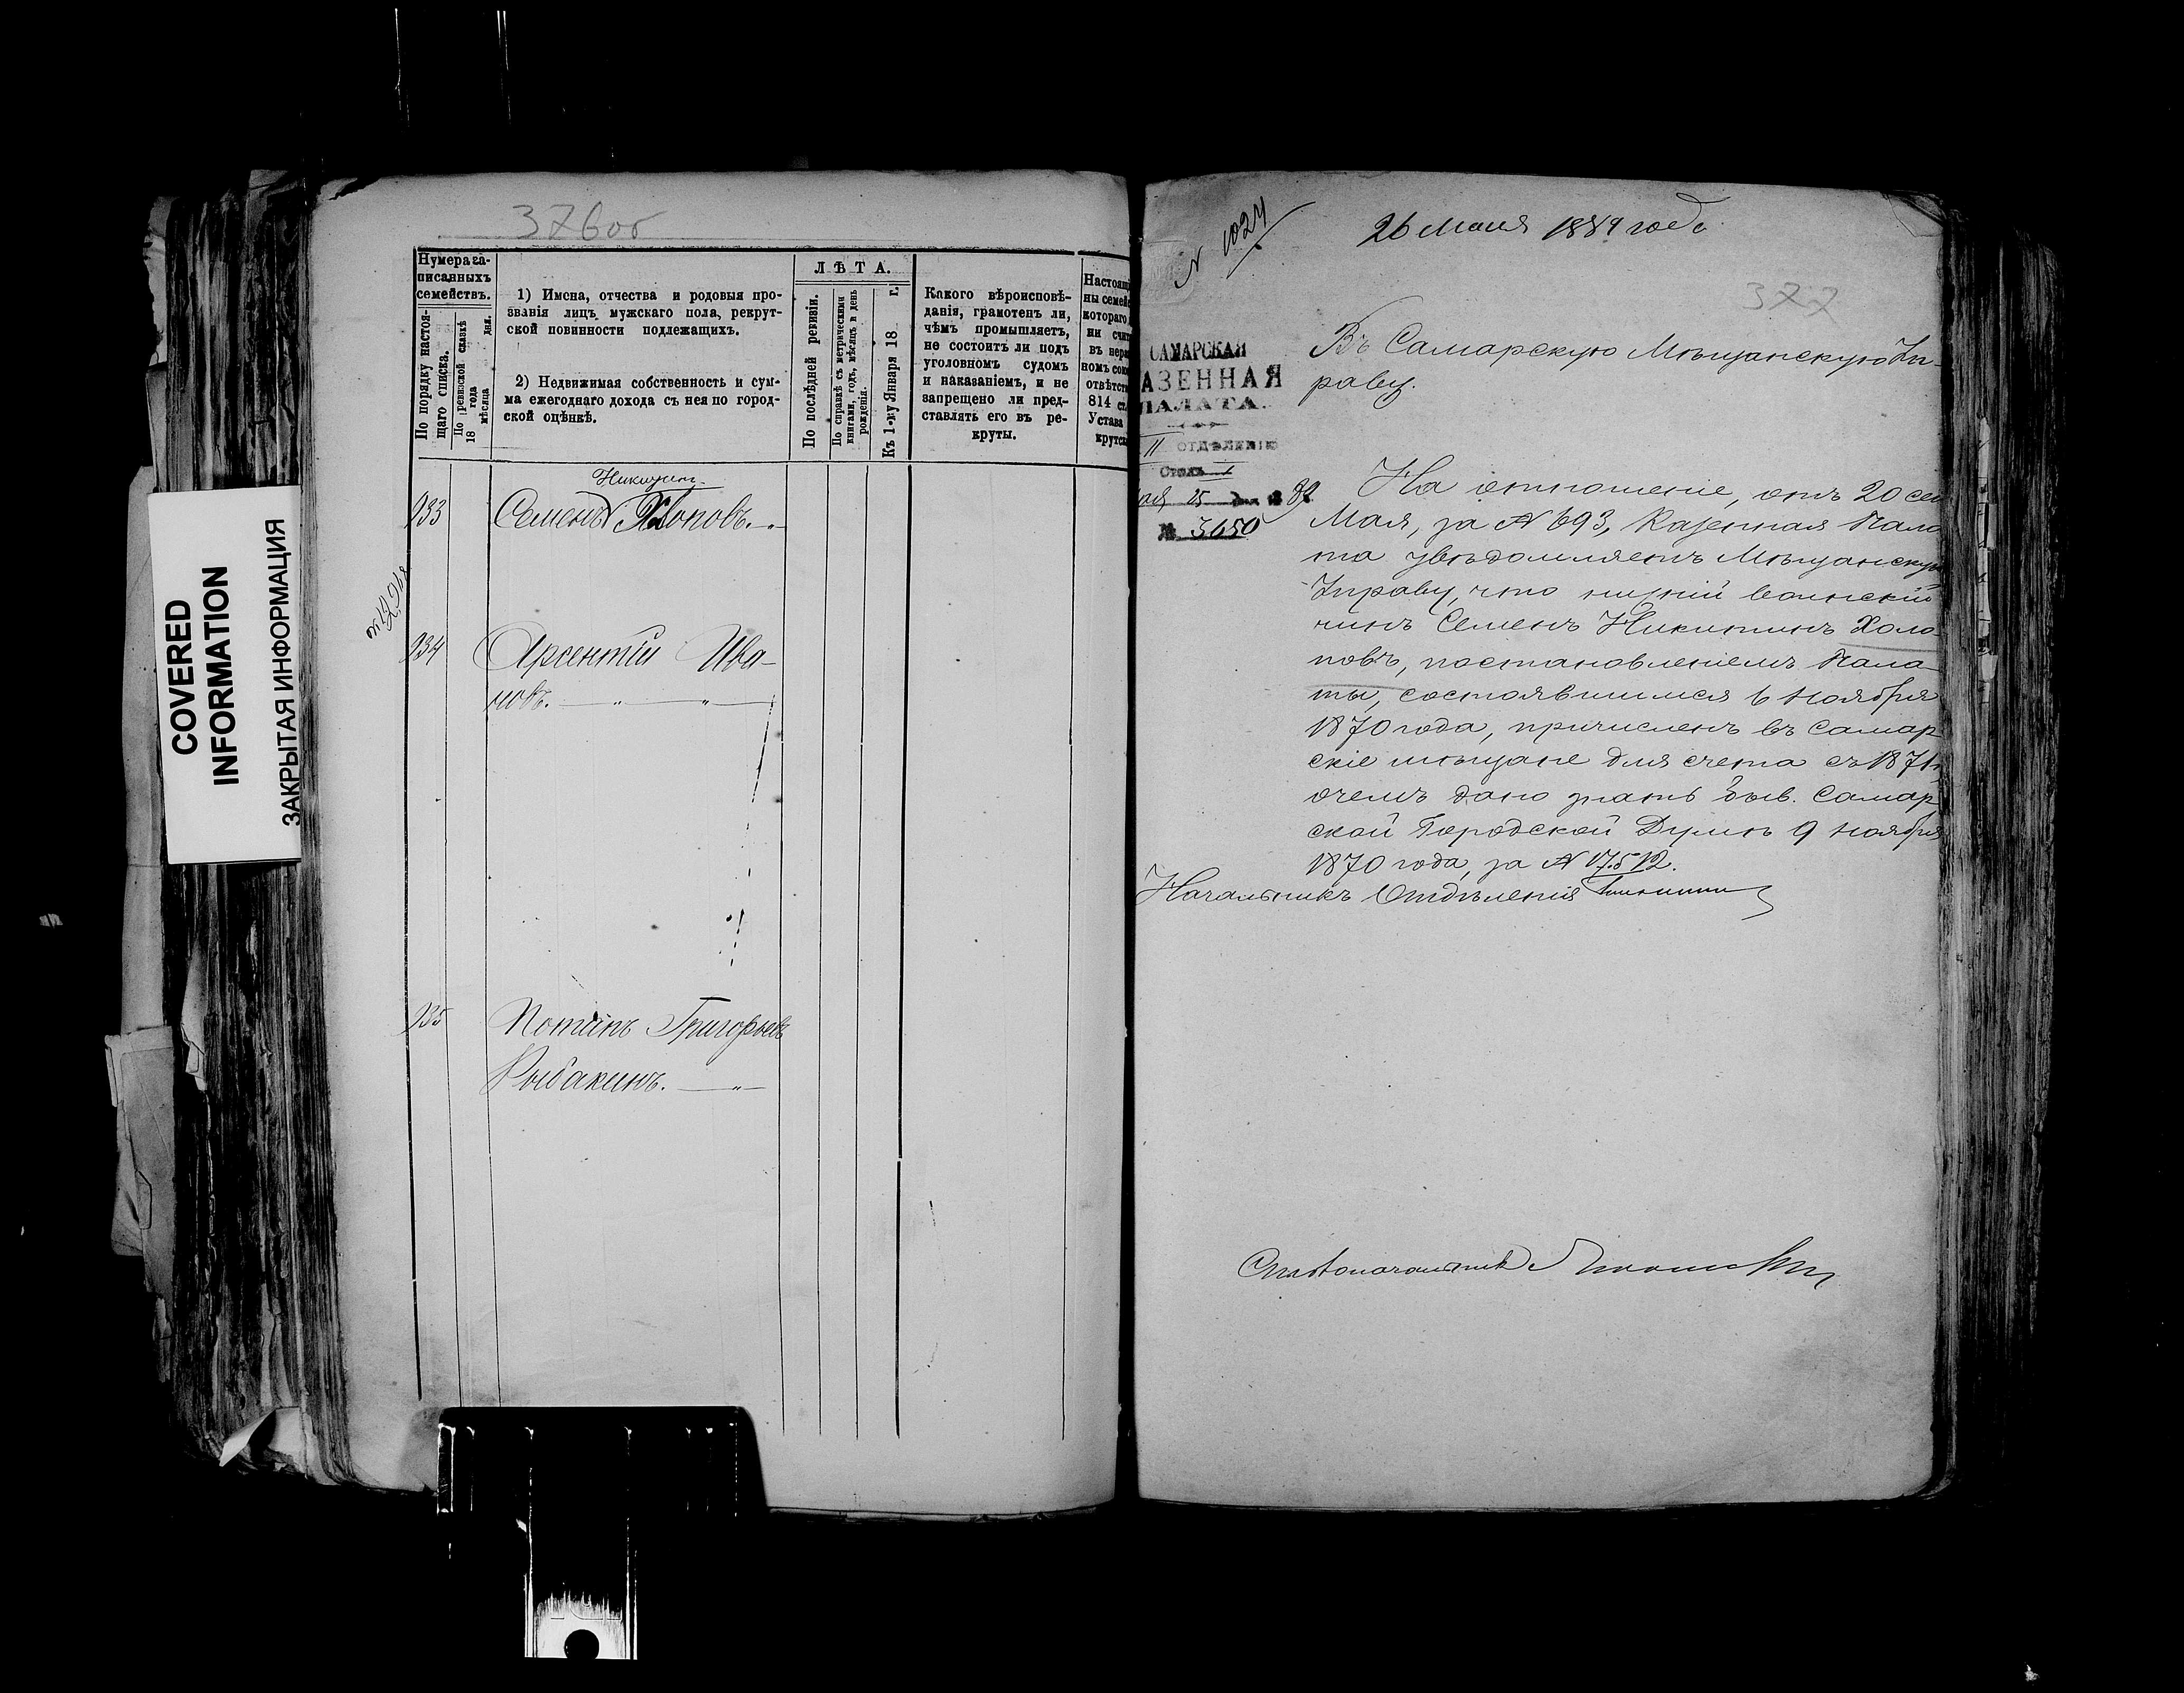 COVERED
INFORMATION
ЗАКРЫТАЯ ИНФОРМАЦИЯ
376об
Нумера за-
писанныхъ
семействъ.
По порядку настоя-
щаго списка.
По ревизской сказкѣ
18 года
мѣсяца дня.
1) Имена, отчества и родовыя про-
званія лицъ мужскаго пола, рекрут-
ской повинности подлежащихъ.
2) Недвижимая собственность и сум-
ма ежегоднаго дохода съ нея по город-
ской оцѣнкѣ.
ЛѢТА.
По послѣдней ревизіи.
По справкѣ съ метрическими
книгами, годъ, мѣсяцъ и день
рожденія.
Къ 1-му Января 18 г.
Какого вѣроисповѣ-
данія, грамотенъ ли,
чѣмъ промышляетъ,
не состоитъ ли подъ
уголовномъ судомъ
и наказаніемъ, и не
запрещено ли пред-
ставлять его въ ре-
круты.
Настоящ
ны семей
котораго
ни счит
въ нера
номъ сою
отвѣтст
814 ст.
Устава
крутск
Никитинъ
933 Семенъ Холоповъ.
934 Арсентій Ива-
новъ.
935 Потапъ Григорьевъ
Рыбакинъ.
№ 1024
26 Мая 1889 года
377
САМАРСКАЯ
АЗЕННАЯ
ПАЛАТА.
II ОТДѢЛЕНІЕ
Столъ 1
Мая 25 дня 1889
№ 3650
Въ Самарскую Мѣщанскую Уп-
раву.
На отношеніе, отъ 20 сего
Мая, за № 693, Казенная Пала
та увѣдомляетъ Мѣщанскую
Управу, что нижній воинскій
чинъ Семенъ Никитинъ Холо-
повъ, постановленіемъ Пала-
ты, состоявшимся 6 Ноября
1870 года, причисленъ въ Самар
скіе мѣщане для счета съ 1871 г.
о чемъ дано знать быв. Самар
ской Городской Думѣ 9 Ноября
1870 года, за № 17512.
Начальникъ Отдѣленія
Столоначальникъ